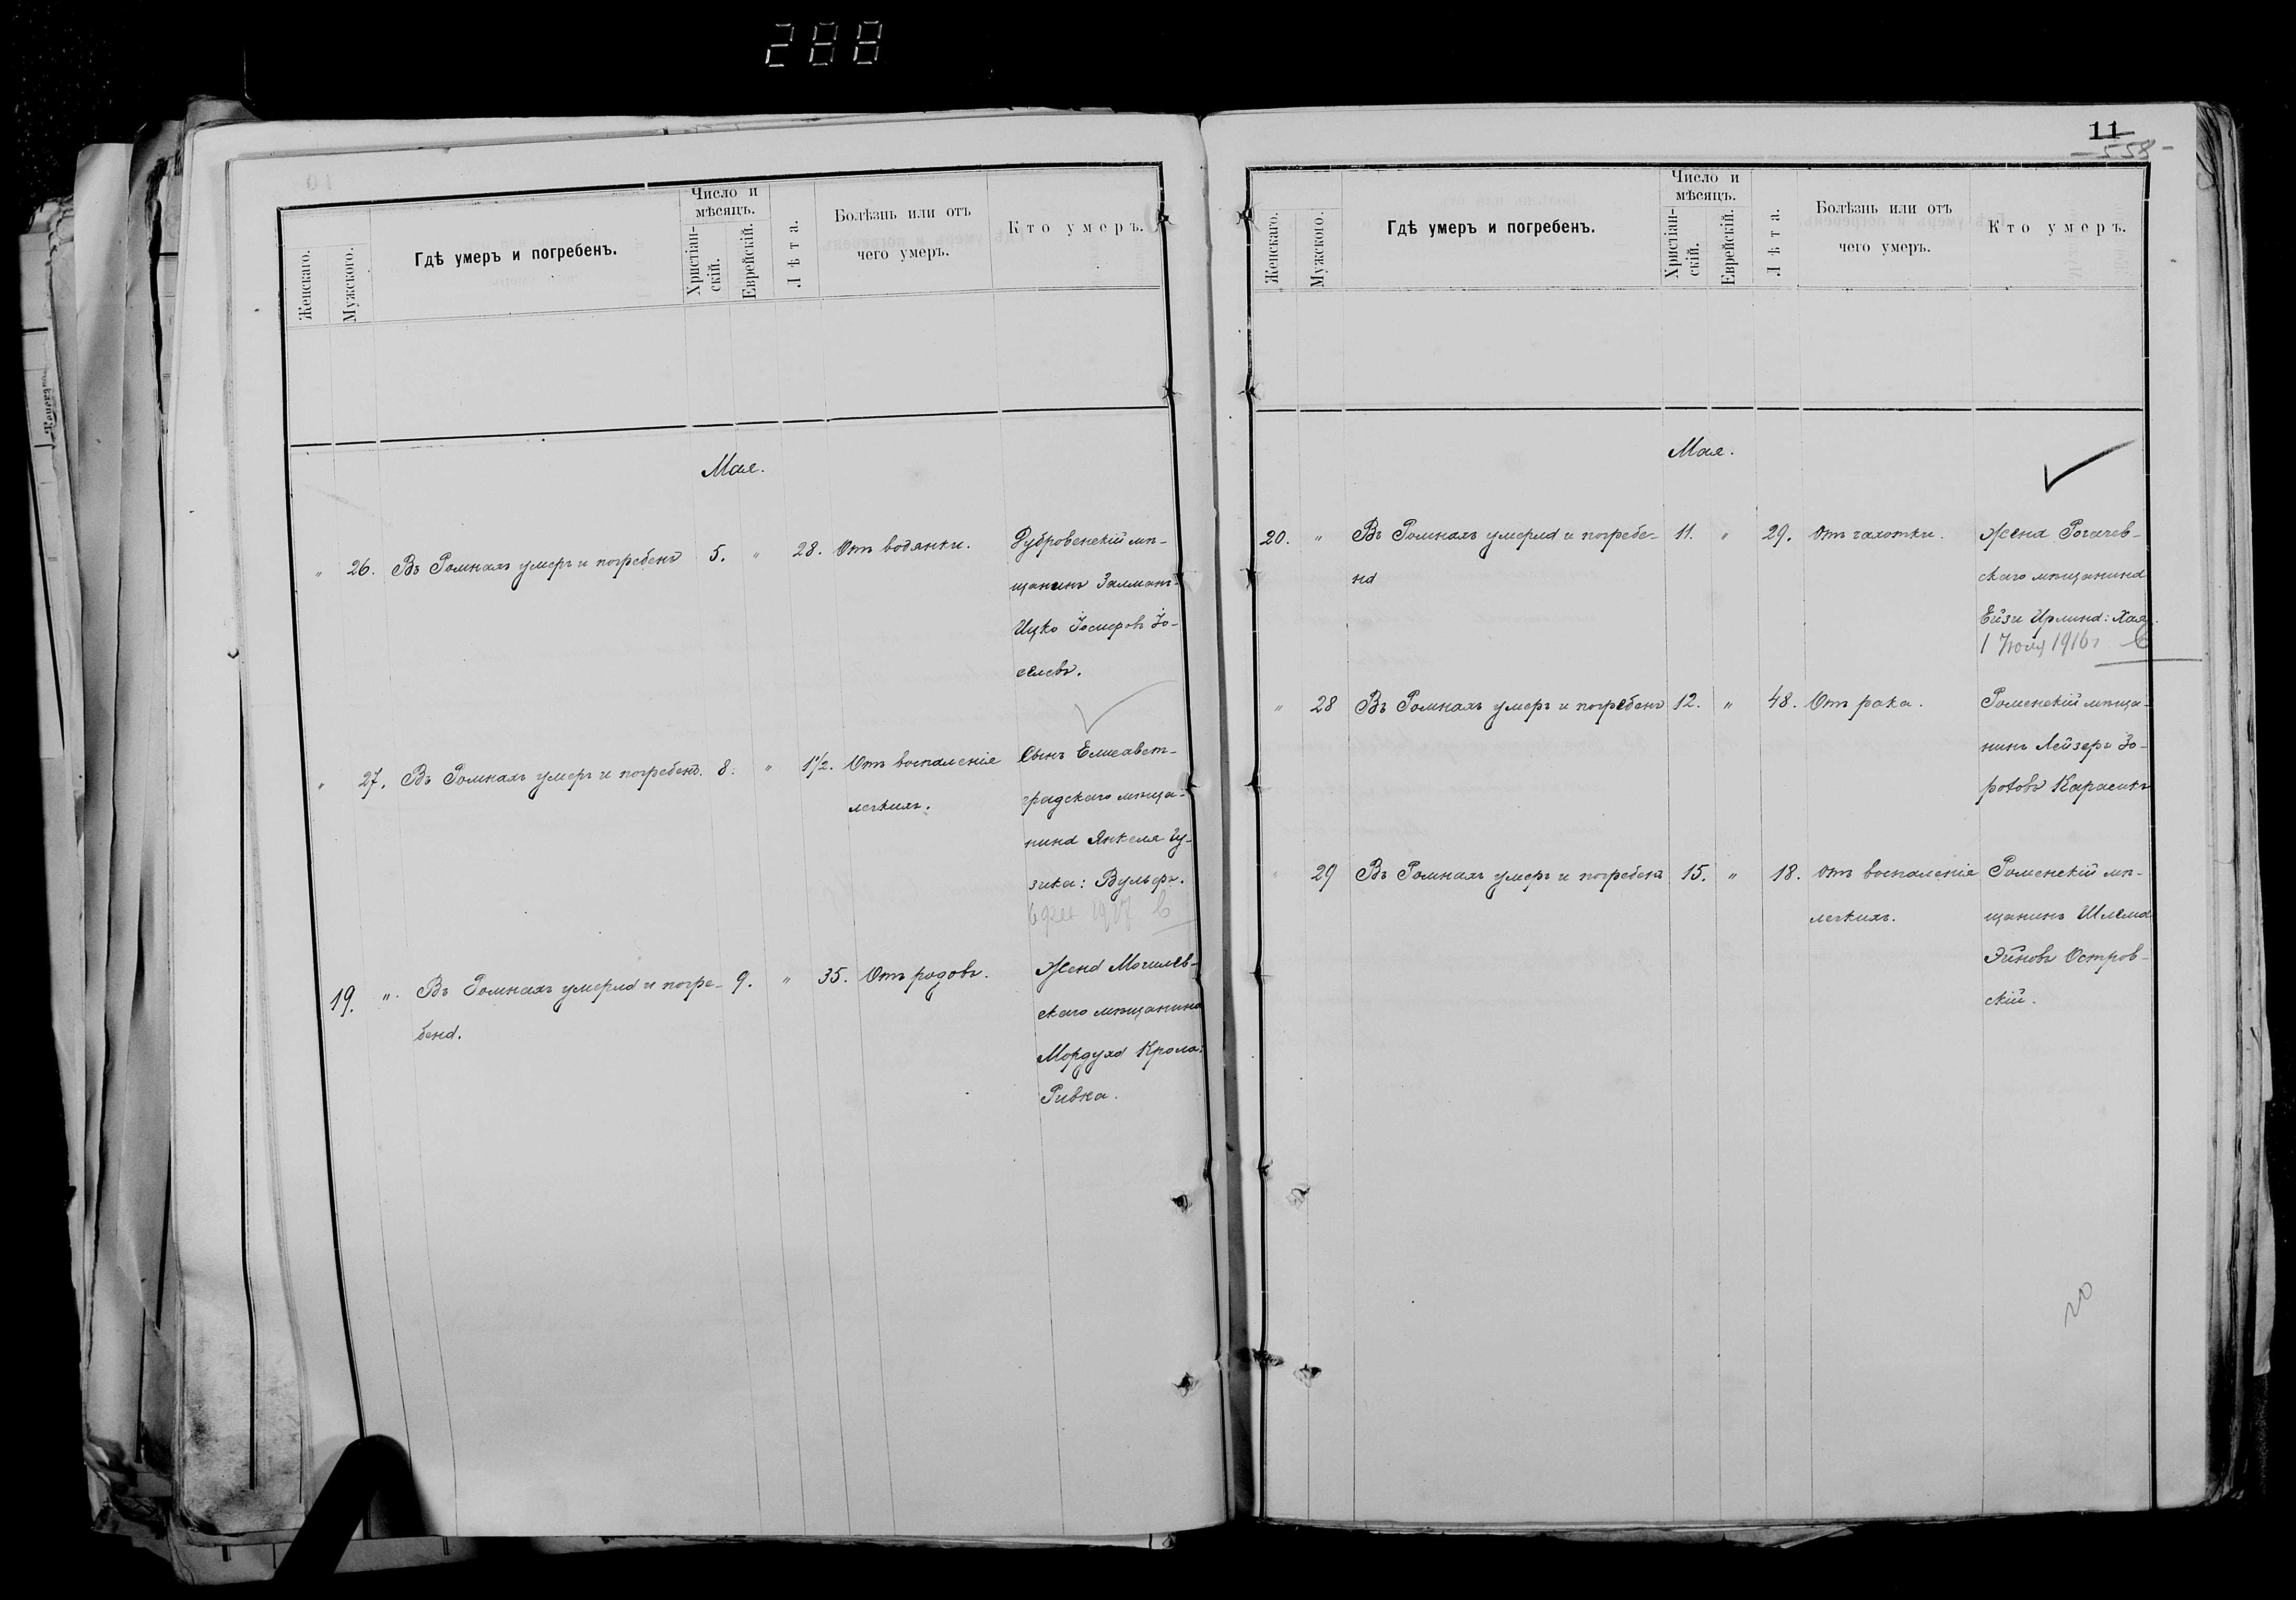 288
Женскаго.
Мужского.
Гдѣ умеръ и погребенъ.
Число и
мѣсяцъ.
Христіан-
скій.
Еврейскій.
Лѣта.
Болѣзнь или отъ
чего умеръ.
Кто умеръ.
Мая.
" 26. Въ Ромнахъ умеръ и погребенъ 5. " 28. Отъ водянки. Дубровенскій мѣ-
щанинъ Залман-
Ицко Іосиеровъ Іо-
селевъ.
" 27. Въ Ромнахъ умеръ и погребенъ. 8. " 1½. Отъ воспаленіе Сынъ Елисавет-
легкихъ. градскаго мѣща-
нина Янкеля
Вульфъ.
19. ". Въ Ромнахъ умерла и погре- 9. " 35. Отъ родовъ. Жена Могилев-
бена. скаго мѣщанина
Мордуха Крола:
Ривка.
11
558-
Женскаго.
Мужского.
Гдѣ умеръ и погребенъ.
Число и
мѣсяцъ.
Христіан-
скій.
Еврейскій.
Лѣта.
Болѣзнь или отъ
чего умеръ.
Кто умеръ.
Мая.
20. " Въ Ромнахъ умерла и погребе- 11. " 29. Отъ чахотки. Жена Рогачев-
на скаго мѣщанина
Ейзи Ирлина: Хая.
1 Іюля 1916 г
" 28 Въ Ромнахъ умеръ и погребенъ 12. " 48. Отъ рака. Роменскій мѣща-
нинъ Лейзеръ Бо-
роховъ Карасикъ
" 29 Въ Ромнахъ умеръ и погребенъ 15. " 18. Отъ воспаленіе Роменскій мѣ-
легкихъ. щанинъ Шлема
Эйновъ Остров-
скій.
20